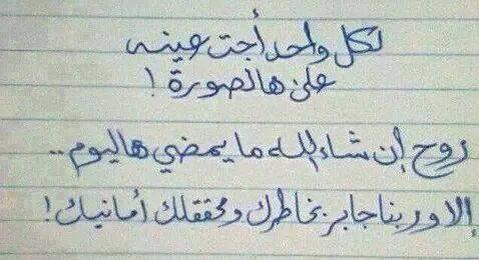 لكل واحد أجت عينه
على هالصورة !
روح إن شاء الله ما يمضي هاليوم ..
إلا وربنا جابر بخاطرك ومحققلك أمانيك !